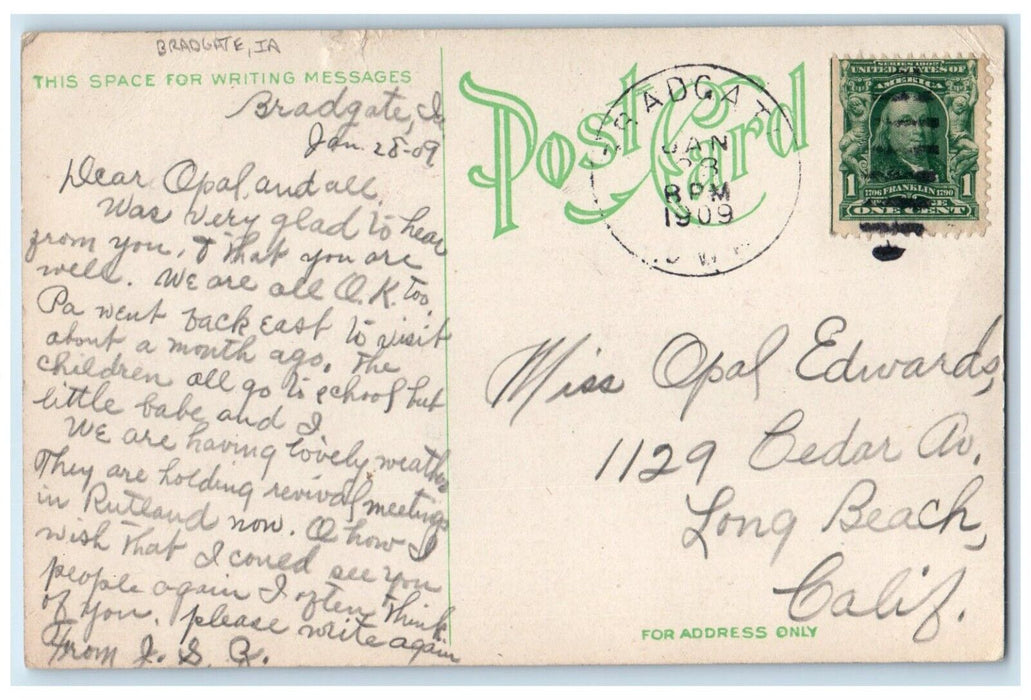 BRADGATE, IA
THIS SPACE FOR WRITING MESSAGES
Bradgate, Ia
Jan. 28-09
Dear Opal and all.
Was very glad to hear
from you, & that you are
well. We are all O.K. too.
Pa went back east to visit
about a month ago. The
children all go to school but
little babe and I
We are having lovely weather
They are holding revival meetings
in Rutland now. O how I
wish that I could see you
people again I often think
of you. please write again
From J. S. R.
Post Card
BRADGATE
JAN
28
8 PM
1909
IOWA
SERIES 1902
UNITED STATES OF
AMERICA
1706 FRANKLIN 1790
1 POSTAGE 1
ONE CENT
Miss Opal Edwards,
1129 Cedar Av.
Long Beach,
Calif.
FOR ADDRESS ONLY